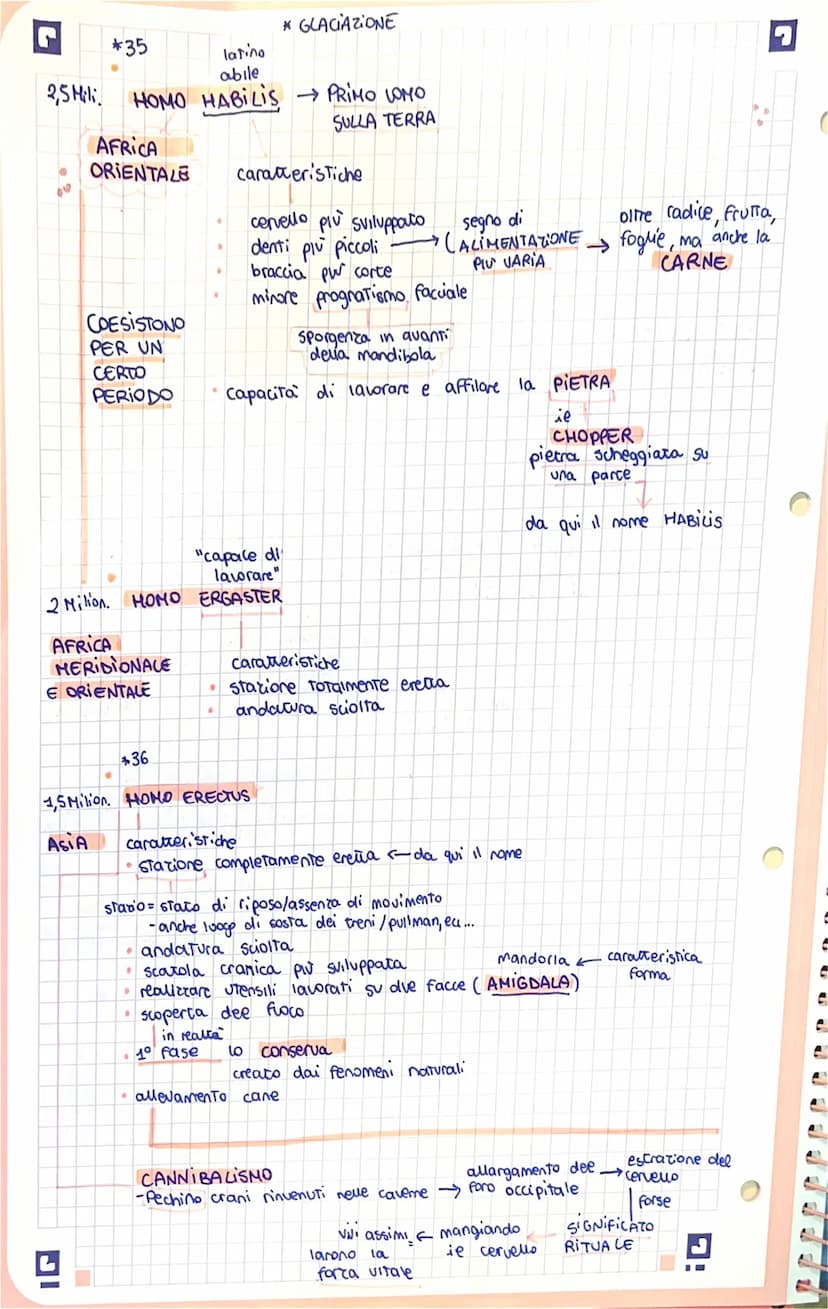 * GLACIAZIONE
*35
latino
abile
2,5 Mili. HOMO HABILIS → PRIMO UOMO
SULLA TERRA
AFRICA
ORIENTALE
caratteristiche
• cervello più sviluppato
• denti più piccoli → (segno di
ALIMENTAZIONE
PIU VARIA
→ oltre radice, frutta,
foglie, ma anche la
CARNE
• braccia più corte
• minore prognatismo facciale
sporgenza in avanti
della mandibola
COESISTONO
PER UN
CERTO
PERIODO
• capacità di lavorare e affilare la PIETRA
ie
CHOPPER
pietra scheggiata su
una parte
da qui il nome HABILIS
"capace di
lavorare"
2 Milion. HOMO ERGASTER
AFRICA
MERIDIONALE
E ORIENTALE
caratteristiche
• stazione totalmente eretta
• andatura sciolta
*36
1,5 Milion. HOMO ERECTUS
ASIA
caratteristiche
• stazione completamente eretta ← da qui il nome
stazio = stato di riposo/assenza di movimento
- anche luogo di sosta dei treni/pullman, ecc...
• andatura sciolta
• scatola cranica più sviluppata
mandorla ← caratteristica
forma
• realizzare utensili lavorati su due facce (AMIGDALA)
• scoperta dee fuoco
in realtà
• 1° fase lo conserva
creato dai fenomeni naturali
• allevamento cane
CANNIBALISMO
- Pechino crani rinvenuti nelle caverne → allargamento dee
foro occipitale
→ estrazione del
cervello
forse
SIGNIFICATO
RITUALE
← mangiando
ie cervello
← assimi=
larono la
forza vitale